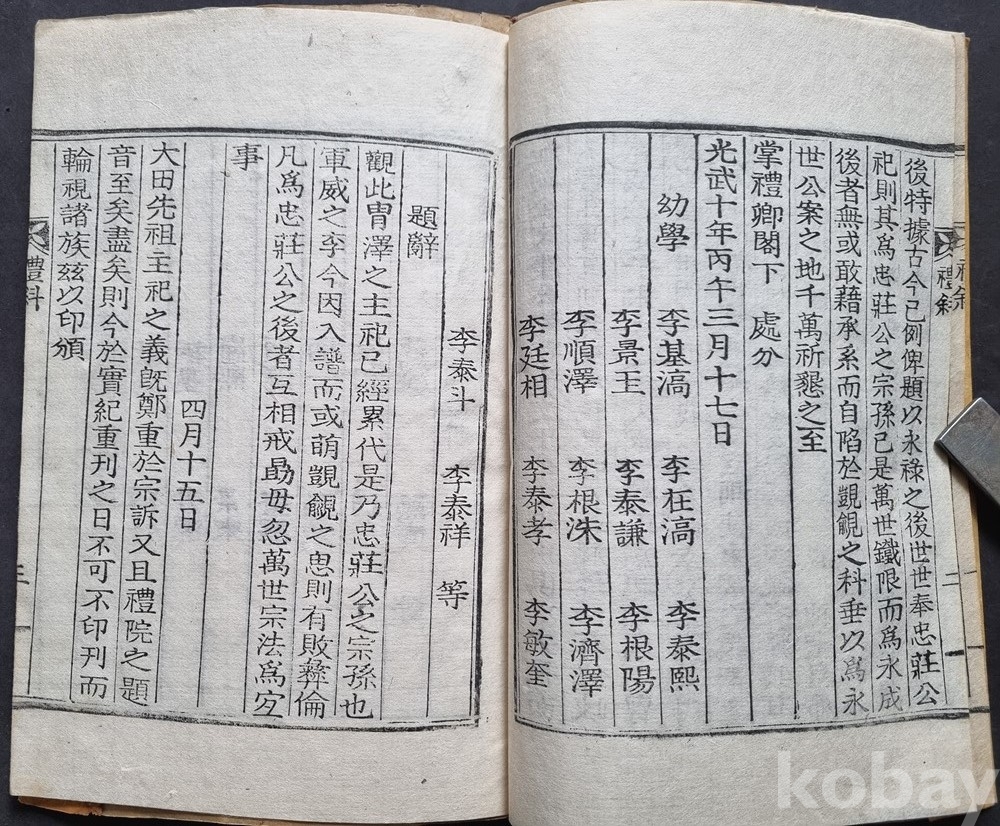 後特據古今已例俾題以永祿之後世世奉忠莊公
祀則其爲忠莊公之宗孫已是萬世鐵限而爲永成
後者無或敢藉承系而自陷於覬覦之科垂以爲永
世公案之地千萬祈懇之至
掌禮卿閤下 處分
光武十年丙午三月十七日
幼學 李基滈 李在滈 李泰熙
李景玉 李泰謙 李根陽
李順澤 李根洙 李濟澤
李廷相 李泰孝 李敏奎
李泰斗 李泰祥 等
題辭
觀此胄澤之主祀已經累代是乃忠莊公之宗孫也
軍威之李今因入譜而或萌覬覦之患則有敗彜倫
凡爲忠莊公之後者互相戒勗毋忽萬世宗法爲宜
事
四月十五日
大田先祖主祀之義旣鄭重於宗訴又且禮院之題
音至矣盡矣則今於實紀重刊之日不可不印刊而
輪視諸族玆以印頒
禮斜
三
禮斜
二
kobay